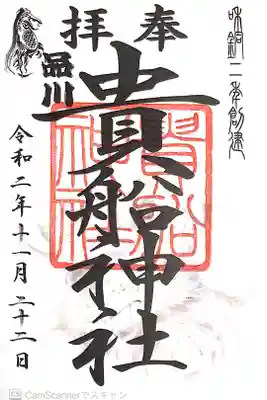 和銅二年創建
奉拝
品川
貴船神社
貴船
神社
令和二年十一月二十二日
CS CamScannerでスキャン